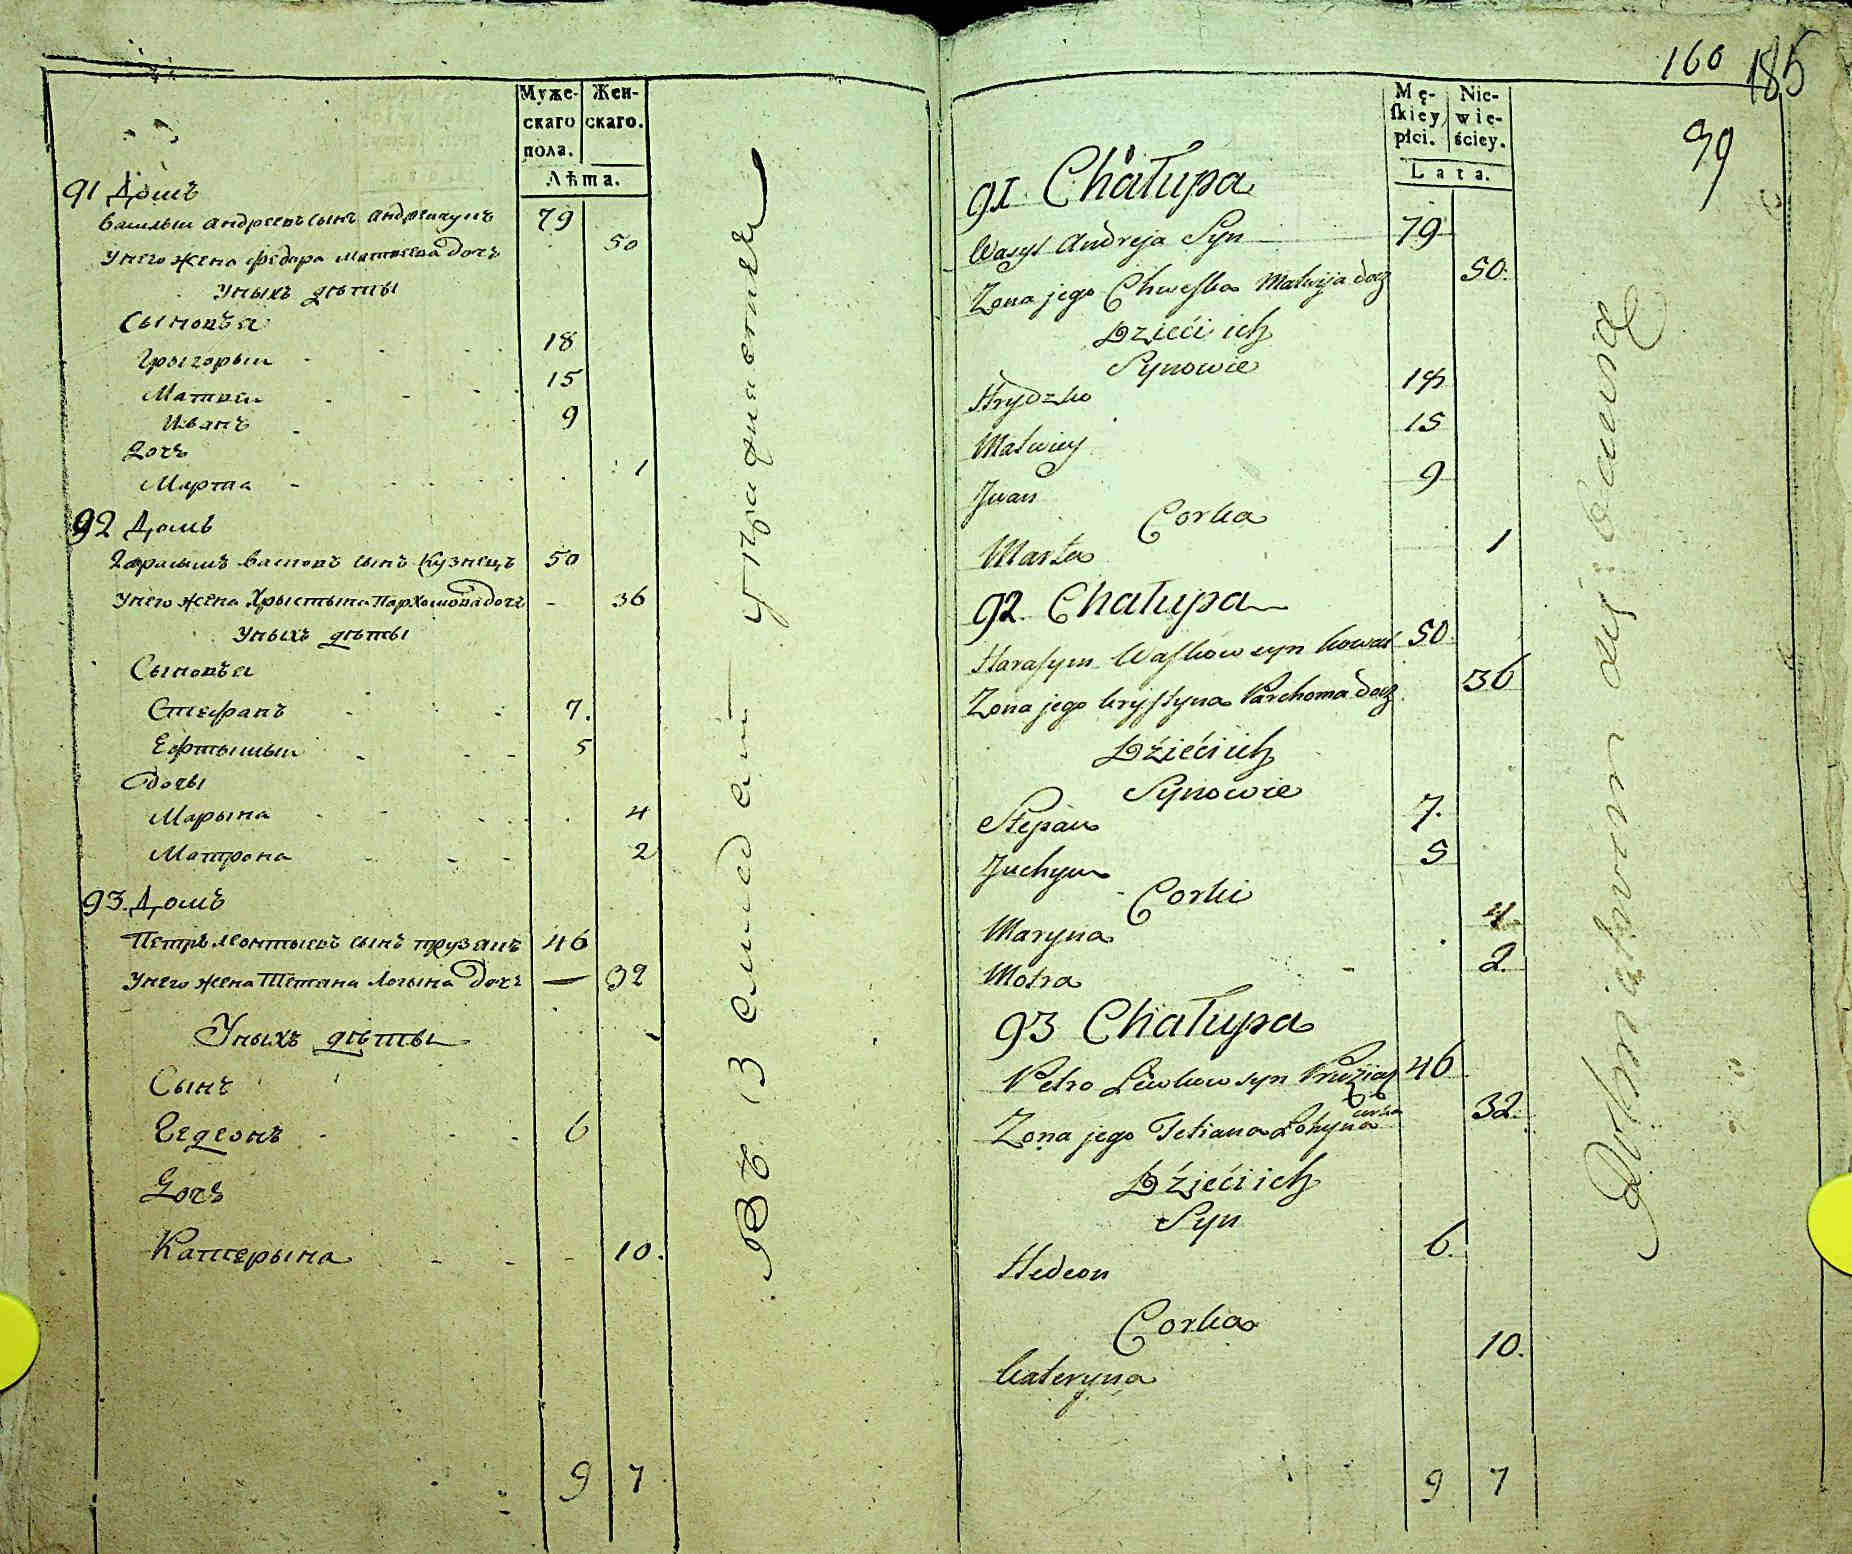 Муже-
скаго
пола.
Жен-
скаго.
Лѣта.
91 Домъ
Василыи Андреевъ сынъ 79
У него жена Федора Матвеева дочъ 50
У ныхъ дѣты
Сыновъя
Грыгорыи 18
Матвеи 15
Иванъ 9
Дочъ
Марта 1
92 Домъ
Гарасымъ Васковъ сынъ Кузнецъ 50
У него жена Хрыстына Пархомова дочъ 36
У ныхъ дѣты
Сыновъя
Стефанъ 7.
Ефтымыи 5
Дочы
Марына 4
Матрона 2
93. Домъ
Петръ Леонтыевъ сынъ 46
У него жена Тетяна Логына дочъ 32
У ныхъ дѣты
Сынъ
Гедеонъ 6
Дочъ
Катерына 10.
9 7
160 185
99
Mę-
skiey
płci.
Nie-
wie-
ściey.
Lata.
91 Chałupa
Wasyl Andreja Syn 79
Zona jego Chweska Matwija docz 50.
Dzieći ich
Synowie
Hrydzko 18
Matwiey 15
Jwan 9
Corka
Marta 1
92 Chałupa
Harasym Waskow syn kowal 50
Zona jego krystyna Parchoma docz 36
Dźieći ich
Synowie
Stepan 7.
Juchym 5
Corki
Maryna 4
Motra 2.
93 Chałupa
Petro Lewkow syn 46
Zona jego Tetiana Łohyna corka 32.
Dźieći ich
Syn
Hedeon 6.
Corka
kateryna 10.
9 7